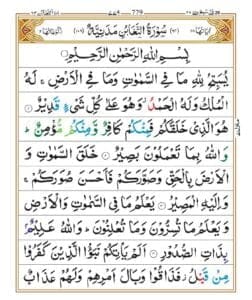 سُوْرَةُ التَّغَابُنِ مَدَنِيَّةٌ
بِسْمِ اللّٰهِ الرَّحْمٰنِ الرَّحِيْمِ
يُسَبِّحُ لِلّٰهِ مَا فِي السَّمٰوٰتِ وَمَا فِي الْاَرْضِ ۚ لَهُ
الْمُلْكُ وَلَهُ الْحَمْدُ ۫ وَهُوَ عَلٰى كُلِّ شَيْءٍ قَدِيْرٌ
هُوَ الَّذِيْ خَلَقَكُمْ فَمِنْكُمْ كَافِرٌ وَّمِنْكُمْ مُّؤْمِنٌ ؕ
وَاللّٰهُ بِمَا تَعْمَلُوْنَ بَصِيْرٌ خَلَقَ السَّمٰوٰتِ وَ
الْاَرْضَ بِالْحَقِّ وَصَوَّرَكُمْ فَاَحْسَنَ صُوَرَكُمْ ۚ
وَاِلَيْهِ الْمَصِيْرُ يَعْلَمُ مَا فِي السَّمٰوٰتِ وَالْاَرْضِ
وَيَعْلَمُ مَا تُسِرُّوْنَ وَمَا تُعْلِنُوْنَ ؕ وَاللّٰهُ عَلِيْمٌۢ
بِذَاتِ الصُّدُوْرِ اَلَمْ يَاْتِكُمْ نَبَؤُا الَّذِيْنَ كَفَرُوْا
مِنْ قَبْلُ ۫ فَذَاقُوْا وَبَالَ اَمْرِهِمْ وَلَهُمْ عَذَابٌ